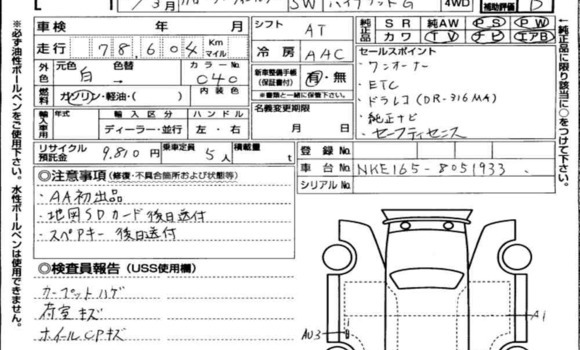 3月
SW ハイブリッドG
4WD
補助評価 D
車検 年 月
シフト AT
純正品 SR 純AW PS PW
カワ TV ナビ エアB
走行 78,604 Km マイル
冷房 AAC
セールスポイント
・ワンオーナー
・ETC
・ドラレコ(DR-316MA)
・純正ナビ
・セーフティセンス
外色 元色 白 → 替色
カラーNo 040
内装色
新車整備手帳(保証書付) 有・無
※書類と一緒に保管下さい。
燃料 ガソリン・軽油・( )
名義変更期限 月 日
輸入車用 年式 輸入区分 ディーラー・並行 ハンドル 左・右
リサイクル預託金 9,810円 乗車定員 5人 積載量 t
登録No
車台No NKE165-8051933
シリアルNo
◎注意事項(修復・不具合箇所および状態等)
・AA初出品
・地図SDカード後日送付
・スペアキー後日送付
◎検査員報告(USS使用欄)
カーペットハゲ
荷室キズ
ホイールCPキズ
AU3
A1
※必ず油性ボールペンをご使用下さい。水性ボールペンは使用できません。
←純正品に限り該当に○をつけて下さい。